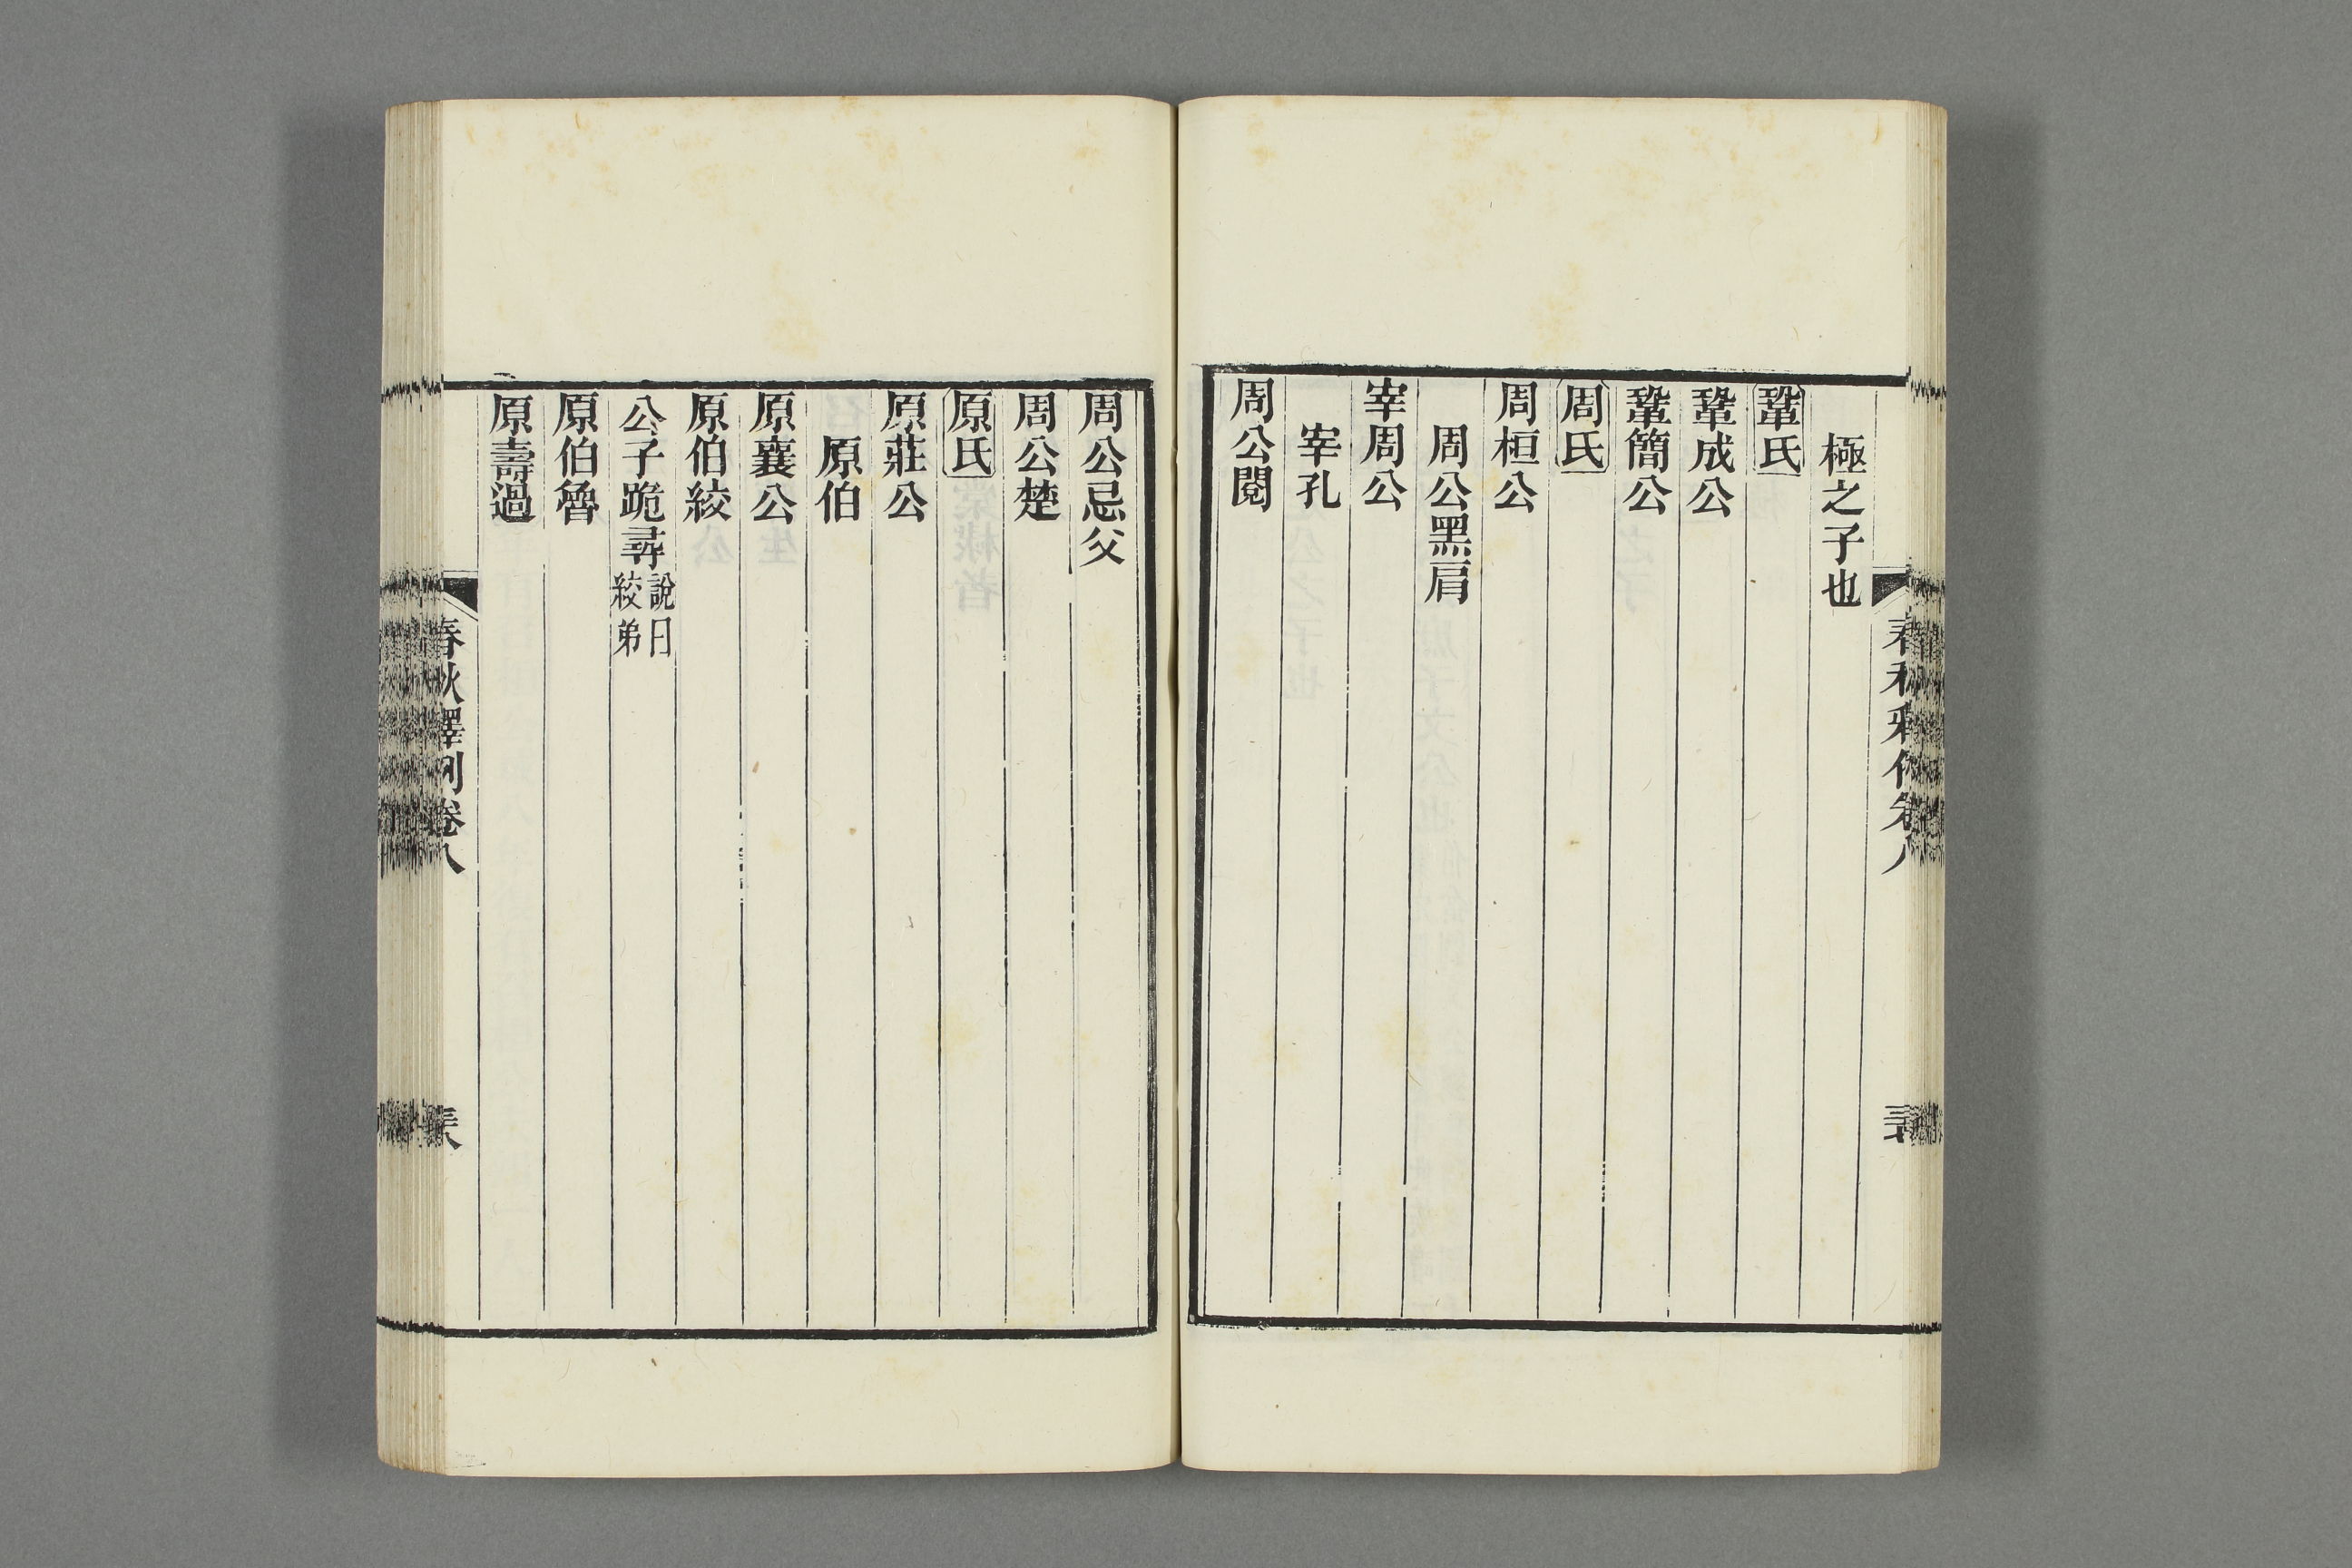 極之子也
鞏氏
鞏成公
鞏簡公
周氏
周桓公
周公黑肩
宰周公
宰孔
周公閱
周公忌父
周公楚
原氏
原莊公
原伯
原襄公
原伯絞
公子跪尋說曰絞弟
原伯魯
原壽過
春秋釋例卷八